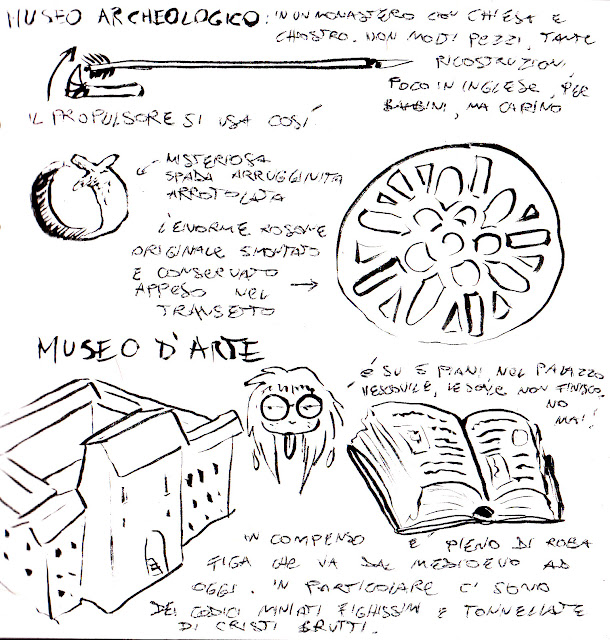 MUSEO ARCHEOLOGICO: IN UN MONASTERO CON CHIESA E
CHIOSTRO. NON MOLTI PEZZI, TANTE
RICOSTRUZIONI,
POCO IN INGLESE, PER
BAMBINI, MA CARINO
IL PROPULSORE SI USA COSÍ
MISTERIOSA
SPADA ARRUGGINITA
ARROTOLATA
L'ENORME ROSONE
ORIGINALE SMONTATO
E CONSERVATO
APPESO NEL
TRANSETTO
MUSEO D'ARTE
É SU 5 PIANI, NEL PALAZZO
VESCOVILE, LE SCALE NON FINISCONO
MAI!
IN COMPENSO É PIENO DI ROBA
FIGA CHE VA DAL MEDIOEVO AD
OGGI. IN PARTICOLARE CI SONO
DEI CODICI MINIATI FIGHISSIMI E TONNELLATE
DI CRISTI BRUTTI.